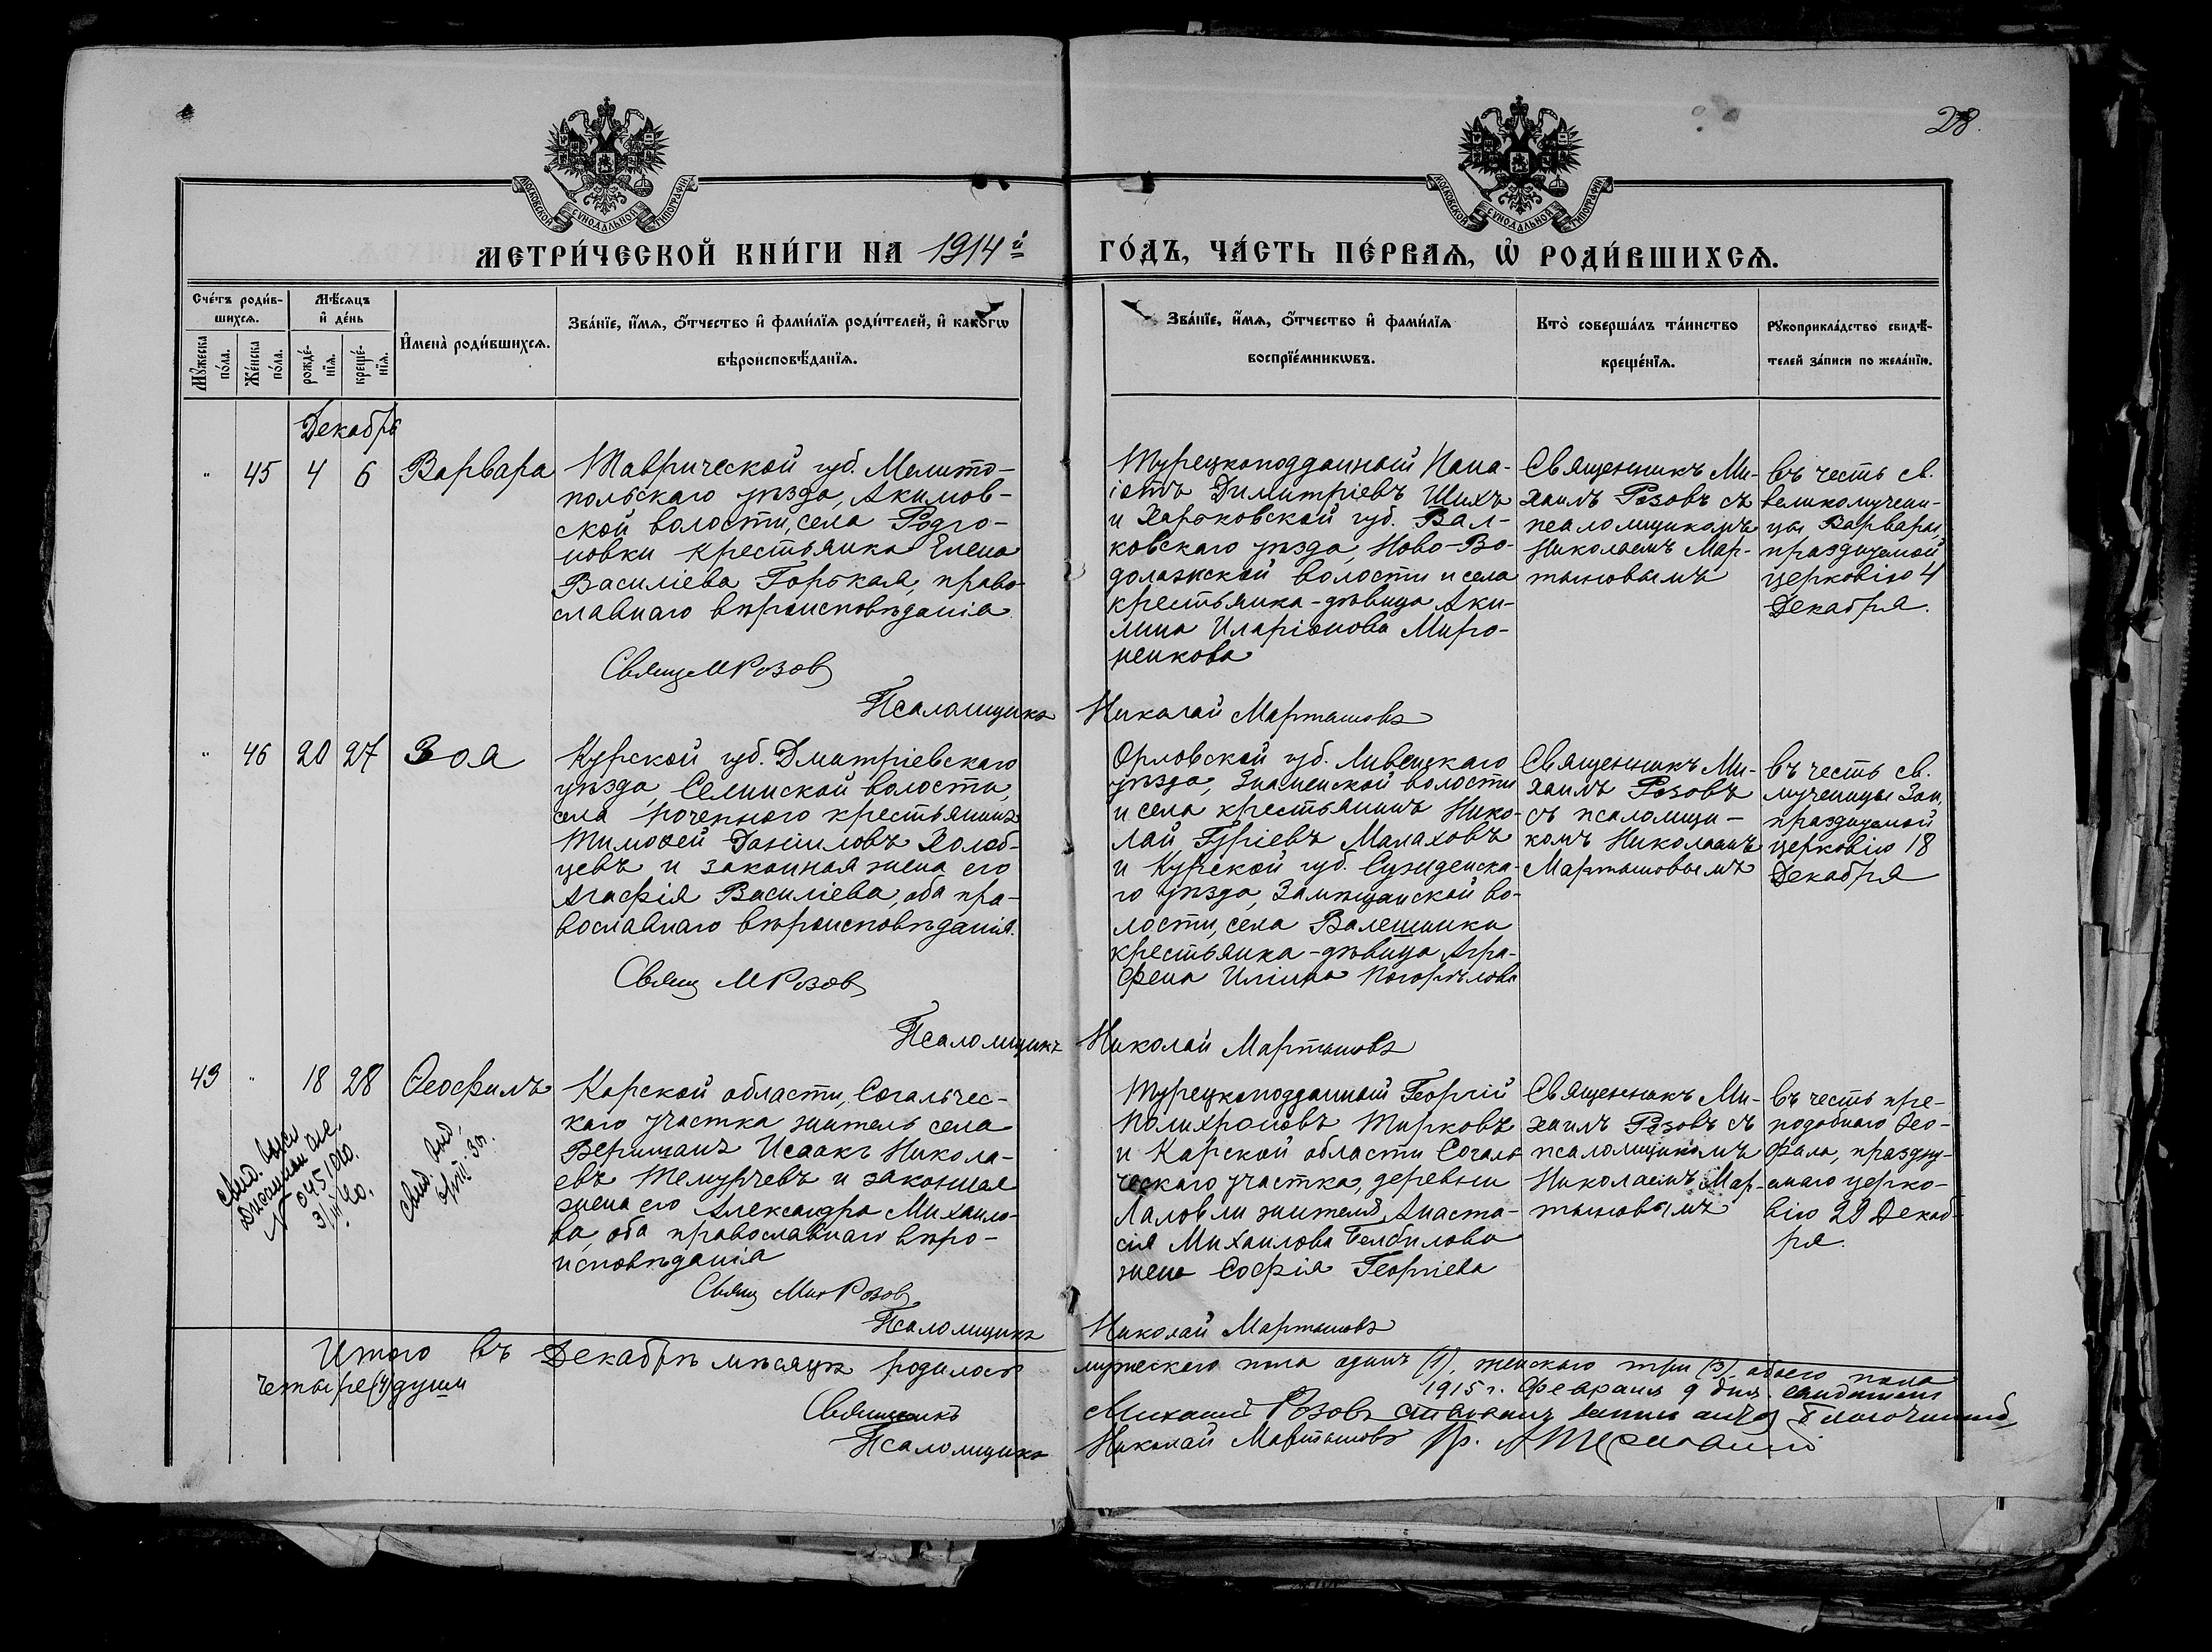 28.
МОСКОВСКОЙ СУНОДАЛЬНОЙ ТИПОГРАФІИ
МОСКОВСКОЙ СУНОДАЛЬНОЙ ТИПОГРАФІИ
МЕТРИ́ЧЕСКОЙ КНИ́ГИ НА 1914й ГО́ДЪ, ЧА́СТЬ ПЕ́РВАѦ, Ѡ҆ РОДИ́ВШИХСѦ.
Сче́тъ роди́в-
шихсѧ.
Мꙋ́жеска
по́ла.
Же́нска
по́ла.
Мѣ́сѧцъ
и҆ де́нь
рожде́-
нїѧ.
креще́-
нїѧ.
И҆мена̀ роди́вшихсѧ.
Зва́нїе, и҆́мѧ, ѻ҆́тчество и҆ фами́лїѧ роди́телей, и҆ како́гѡ
вѣроисповѣ́данїѧ.
Зва́нїе, и҆́мѧ, ѻ҆́тчество и҆ фами́лїѧ
воспрїе́мникѡвъ.
Кто̀ соверша́лъ та́инство
креще́нїѧ.
Рꙋкоприкла́дство свидѣ́-
телей за́писи по жела́нїю.
Декабрь
" 45 4 6 Варвара
Таврической губ. Мелито-
польскаго уѣзда, Акимов-
ской волости, села Родіо-
новки крестьянка Елена
Василіева Горькая, право-
славнаго вѣроисповѣданія
Турецкоподданный Пана-
іотъ Димитріевъ Шихъ
и Харьковской губ. Вал-
ковскаго уѣзда, Ново-Во-
долажской волости и села
крестьянка-дѣвица Аки-
лина Иларіонова Миро-
ненкова
Священникъ Ми-
хаилъ Розовъ съ
псаломщикомъ
Николаемъ Мар-
тыновымъ
въ честь св.
великомучени-
цы Варвары,
празднуемой
церковію 4
Декабря.
Свящ М Розов
Псаломщикъ Николай Мартыновъ
" 46 20 27 Зоя
Курской губ. Дмитріевскаго
уѣзда, Селинской волости,
села Поченного крестьянинъ
Тимоѳей Даниловъ Холоб-
цевъ и законная жена его
Агафія Василіева, оба пра-
вославнаго вѣроисповѣданія.
Орловской губ. Ливенскаго
уѣзда, Знаменской волости
и села крестьянинъ Нико-
лай Гуріевъ Малаховъ
и Курской губ. Сужденска-
го уѣзда, Замѣщанской во-
лости, села Валешинки
крестьянка-дѣвица Агра-
фена Иліина Погорѣлова
Священникъ Ми-
хаилъ Розовъ
съ псаломщи-
комъ Николаемъ
Мартыновымъ
въ честь св.
мученицы Зои,
празднуемой
церковію 18
Декабря
Свящ М Розов
Псаломщикъ Николай Мартыновъ
49 " 18 28 Ѳеофилъ
Карской области, Согальчес-
каго участка житель села
Веришанъ Исаакъ Никола-
евъ Темурчевъ и законная
жена его Александра Михаило-
ва, оба православнаго вѣро-
исповѣданія
Турецкоподданный Георгій
Полихроновъ Тирковъ
и Карской области Согаль-
ческаго участка, деревни
Лаловли жителя Анаста-
сія Михаилова Белбилова
жена Софія Георгіева
Священникъ Ми-
хаилъ Розовъ съ
псаломщикомъ
Николаемъ Мар-
тыновымъ
въ честь пре-
подобнаго Ѳео-
фила, праздну-
емаго церко-
вію 29 Декаб-
ря.
Свящ Мих Розов
Псаломщикъ Николай Мартыновъ
Итого въ Декабрѣ мѣсяцѣ родилось мужескаго пола одинъ (1), женскаго три (3), обоего пола
четыре (4) души
1915 г. Февраля 9 дня
Священникъ Михаилъ Розовъ
Псаломщикъ Николай Мартыновъ